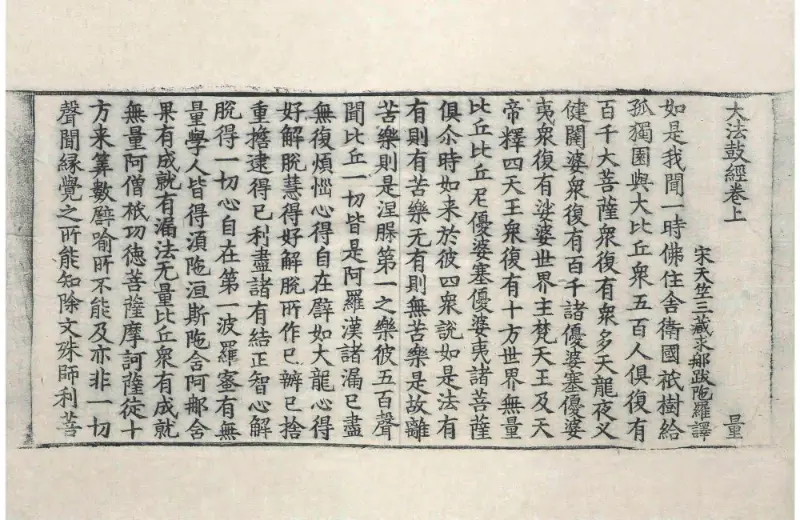 大法鼓經卷上　量
宋天竺三藏求那跋陁羅譯
如是我聞一時佛住舍衛國祇樹給
孤獨園與大比丘衆五百人俱復有
百千大菩薩衆復有衆多天龍夜叉
健闥婆衆復有百千諸優婆塞優婆
夷衆復有娑婆世界主梵天王及天
帝釋四天王衆復有十方世界無量
比丘比丘尼優婆塞優婆夷諸菩薩
俱尒時如来於彼四衆說如是法有
有則有苦樂无有則無苦樂是故離
苦樂則是涅槃第一之樂彼五百聲
聞比丘一切皆是阿羅漢諸漏已盡
無復煩惱心得自在譬如大龍心得
好解脫慧得好解脫所作已辦已捨
重擔逮得已利盡諸有結正智心解
脫得一切心自在第一波羅蜜有無
量學人皆得湏陁洹斯陁含阿那含
果有成就有漏法无量比丘衆有成就
無量阿僧祇功德菩薩摩訶薩從十
方来筭數譬喻所不能及亦非一切
聲聞緣覺之所能知除文殊師利菩